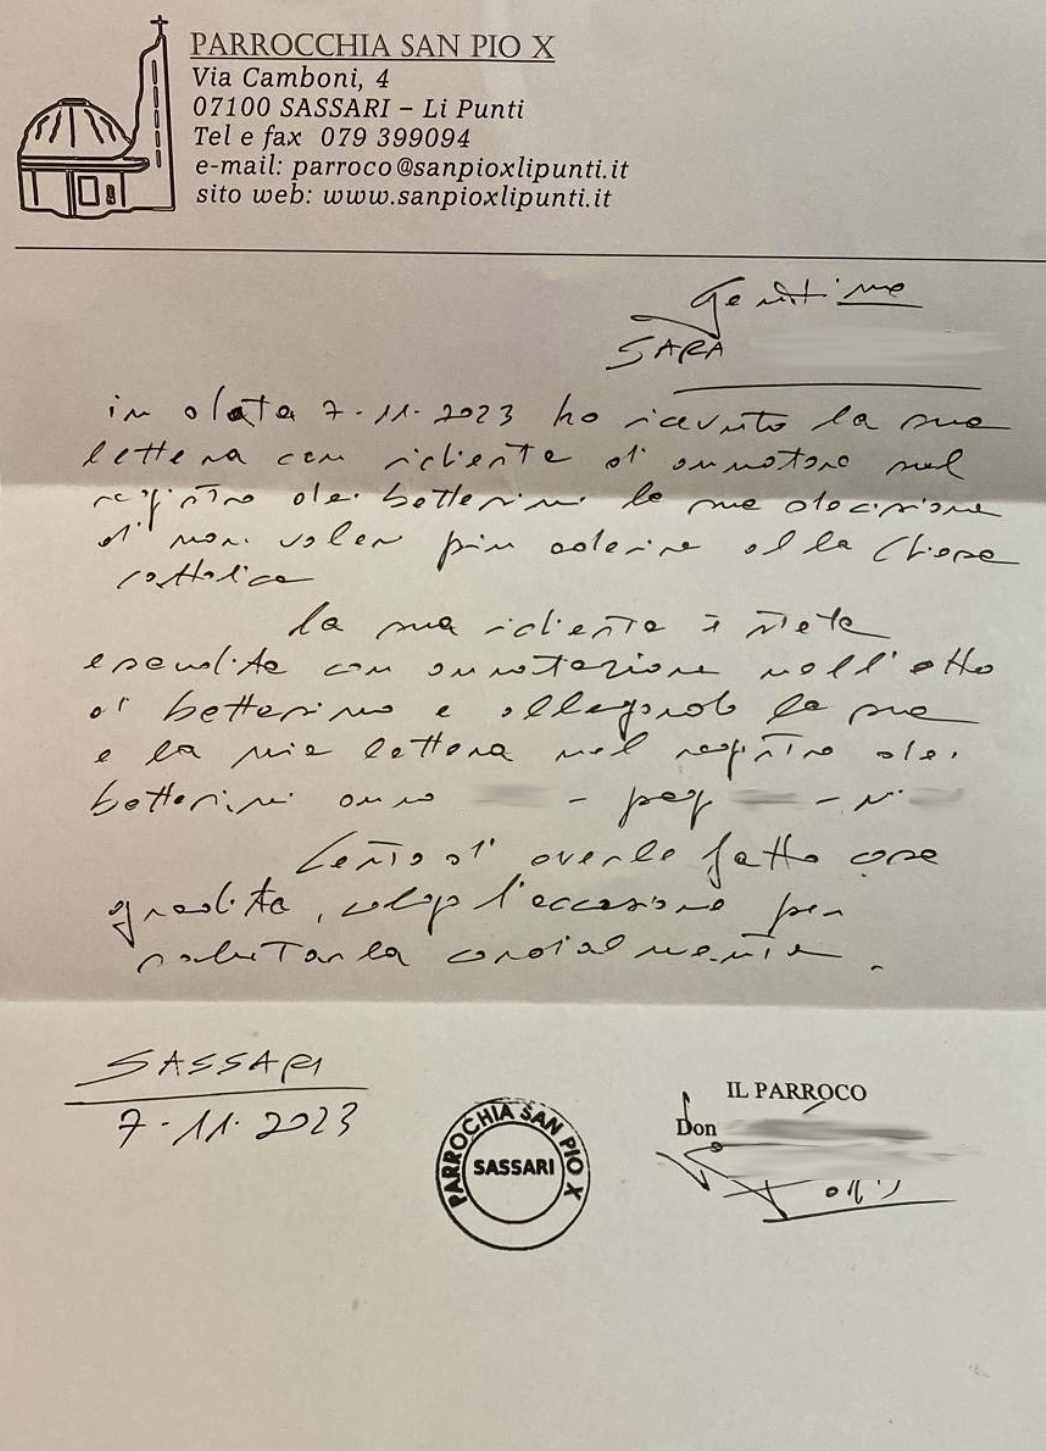 PARROCCHIA SAN PIO X
Via Camboni, 4
07100 SASSARI – Li Punti
Tel e fax 079 399094
e-mail: parroco@sanpioxlipunti.it
sito web: www.sanpioxlipunti.it
Gentilma
SARA
in data 7-11-2023 ho ricevuto la sua
lettera con richiesta di annotare nel
registro dei battesimi la sua decisione
di non voler più aderire alla Chiesa
cattolica
La sua richiesta è stata
esaudita con annotazione nell'atto
di battesimo e allegando la sua
e la mia lettera nel registro dei
battesimi anno - pag - n.
Certo di averle fatto cosa
gradita, colgo l'occasione per
salutarla cordialmente.
SASSARI
7-11-2023
PARROCHIA SAN PIO X
SASSARI
IL PARROCO
Don